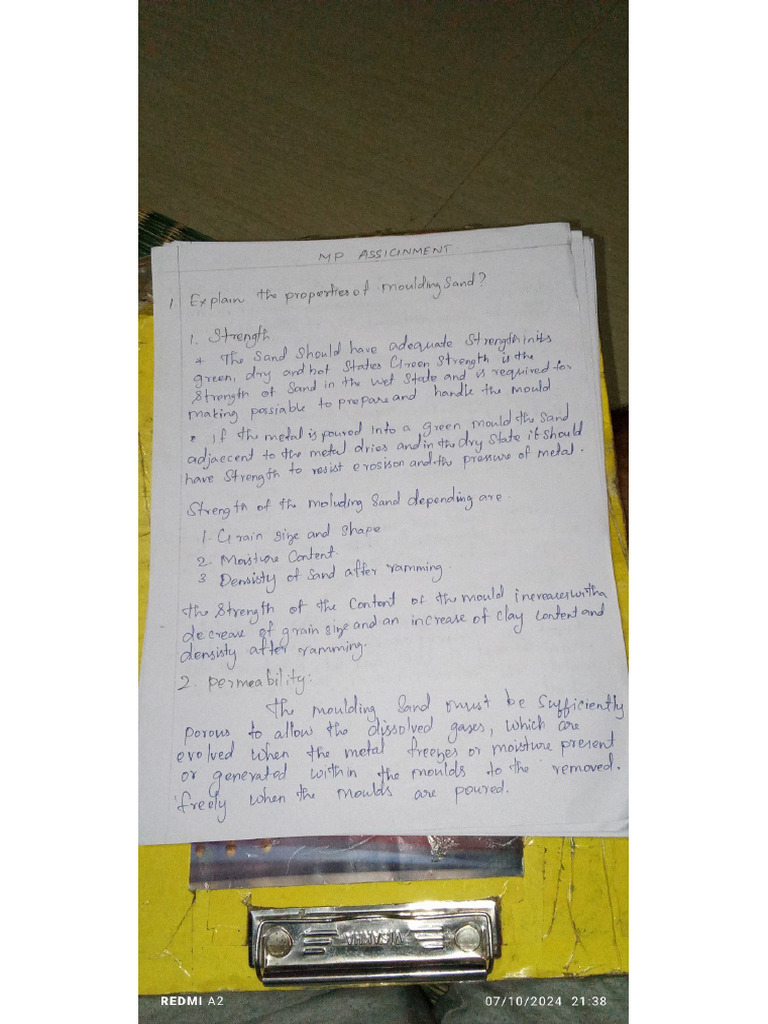 MP ASSIGNMENT
1 Explain the properties of moulding Sand?
1. Strength
* The Sand Should have adequate Strength in its
green, dry and hot States Green Strength is the
Strength of Sand in the Wet State and is required for
making possiable to prepare and handle the mould
* If the metal is poured into a green mould the Sand
adjaecent to the metal dries and in the dry State it should
have Strength to resist erosison and the pressure of metal.
Strength of the moluding Sand depending are.
1. Grain size and shape
2. Moisture Content.
3 Densisty of Sand after ramming.
the Strength of the Content of the mould increases with a
decrease of grain size and an increase of clay content and
densisty after ramming.
2. permeability:
The moulding Sand must be Sufficiently
porous to allow the dissolved gases, which are
evolved when the metal freezes or moisture present
or generated within the moulds to the removed.
freely when the moulds are poured.
VISARHA
REDMI A2
07/10/2024 21:38